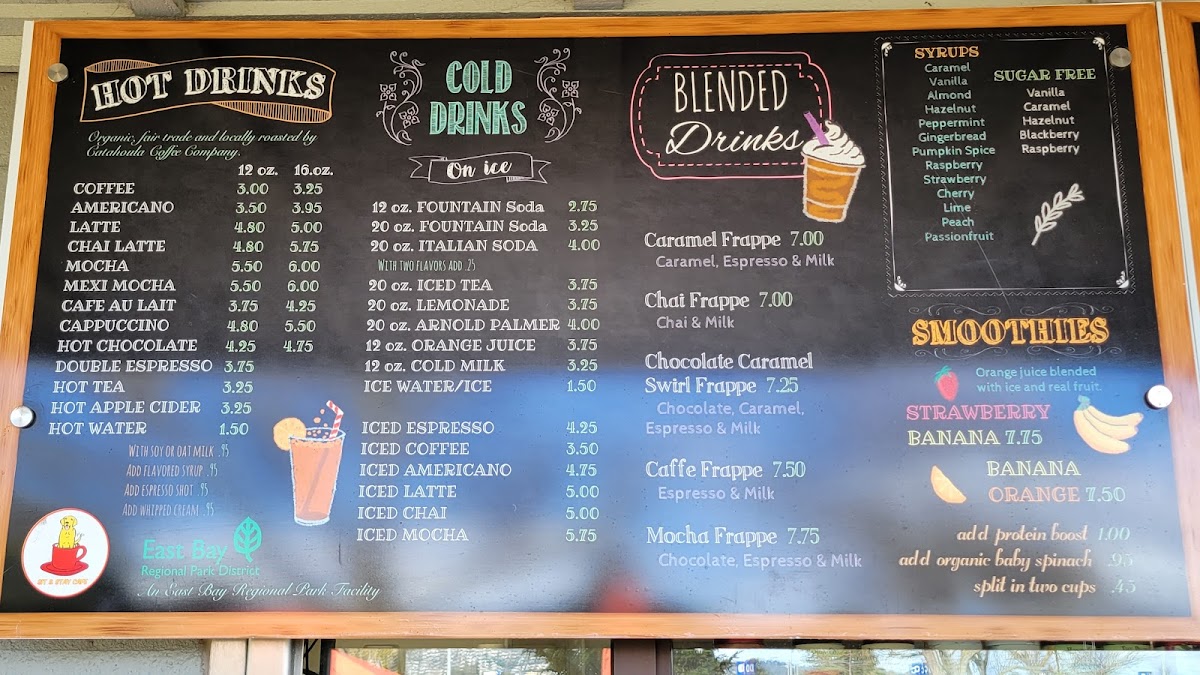 HOT DRINKS
Organic, fair trade and locally roasted by
Catahoula Coffee Company.
12 oz. 16.oz.
COFFEE 3.00 3.25
AMERICANO 3.50 3.95
LATTE 4.80 5.00
CHAI LATTE 4.80 5.75
MOCHA 5.50 6.00
MEXI MOCHA 5.50 6.00
CAFE AU LAIT 3.75 4.25
CAPPUCCINO 4.80 5.50
HOT CHOCOLATE 4.25 4.75
DOUBLE ESPRESSO 3.75
HOT TEA 3.25
HOT APPLE CIDER 3.25
HOT WATER 1.50
WITH SOY OR OAT MILK .95
ADD FLAVORED SYRUP .95
ADD ESPRESSO SHOT .95
ADD WHIPPED CREAM .95
SIT & STAY CAFE
East Bay
Regional Park District
An East Bay Regional Park Facility
COLD
DRINKS
On ice
12 oz. FOUNTAIN Soda 2.75
20 oz. FOUNTAIN Soda 3.25
20 oz. ITALIAN SODA 4.00
WITH TWO FLAVORS ADD .25
20 oz. ICED TEA 3.75
20 oz. LEMONADE 3.75
20 oz. ARNOLD PALMER 4.00
12 oz. ORANGE JUICE 3.75
12 oz. COLD MILK 3.25
ICE WATER/ICE 1.50
ICED ESPRESSO 4.25
ICED COFFEE 3.50
ICED AMERICANO 4.75
ICED LATTE 5.00
ICED CHAI 5.00
ICED MOCHA 5.75
BLENDED
Drinks
Caramel Frappe 7.00
Caramel, Espresso & Milk
Chai Frappe 7.00
Chai & Milk
Chocolate Caramel
Swirl Frappe 7.25
Chocolate, Caramel,
Espresso & Milk
Caffe Frappe 7.50
Espresso & Milk
Mocha Frappe 7.75
Chocolate, Espresso & Milk
SYRUPS
Caramel
Vanilla
Almond
Hazelnut
Peppermint
Gingerbread
Pumpkin Spice
Raspberry
Strawberry
Cherry
Lime
Peach
Passionfruit
SUGAR FREE
Vanilla
Caramel
Hazelnut
Blackberry
Raspberry
SMOOTHIES
Orange juice blended
with ice and real fruit.
STRAWBERRY
BANANA 7.75
BANANA
ORANGE 7.50
add protein boost 1.00
add organic baby spinach .95
split in two cups .45